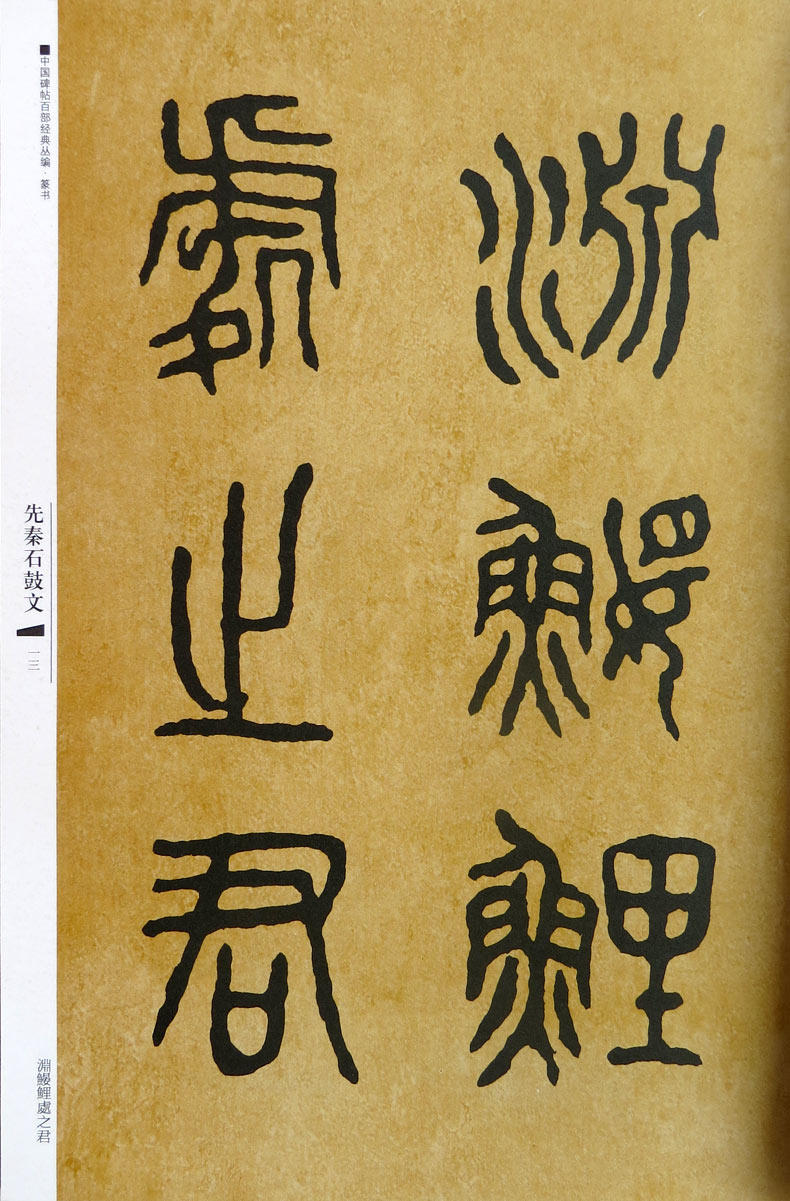 淵鰋鯉
處之君
■中国碑帖百部经典丛编·篆书
先秦石鼓文
一三
淵鰋鯉處之君